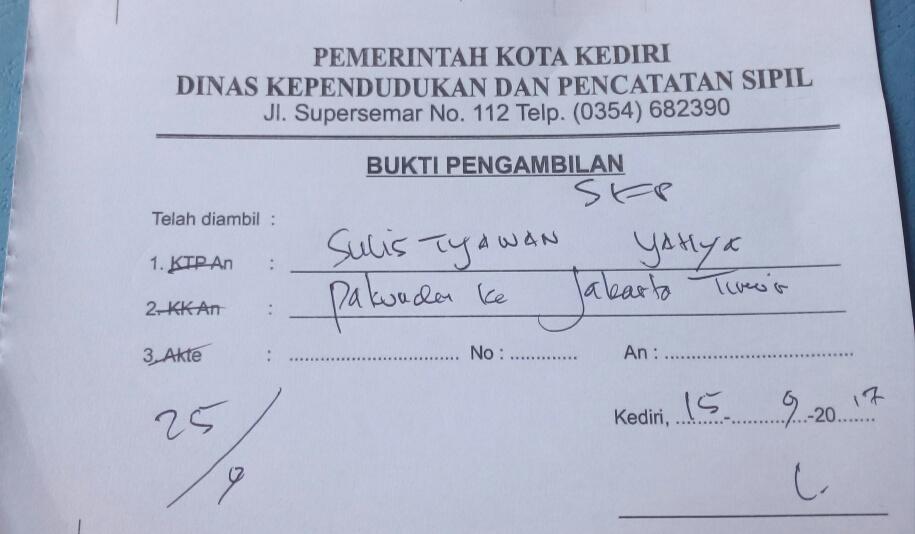 PEMERINTAH KOTA KEDIRI
DINAS KEPENDUDUKAN DAN PENCATATAN SIPIL
Jl. Supersemar No. 112 Telp. (0354) 682390
BUKTI PENGAMBILAN
Telah diambil :
1. KTP An : SULISTYAWAN YAHYA
2. KK An : ke Jakarta Timur
3. Akte : ................................ No : ............. An : ....................................
25/9
Kediri, 15 - 9 -20 17